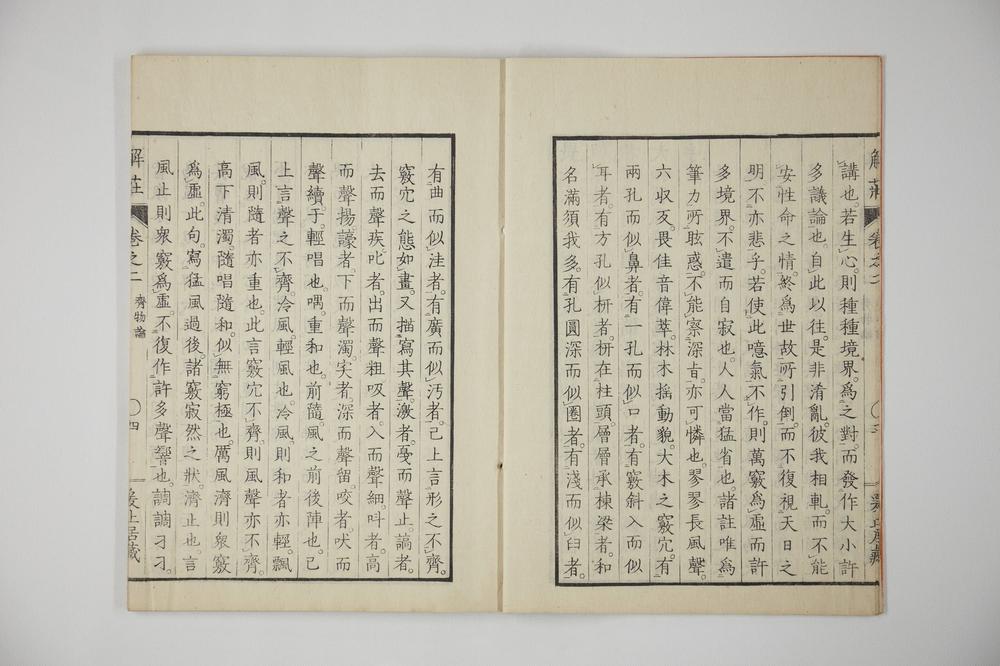 講也。若生心。則種種境界。爲之對。而發作大小許
多議論也。自此以往。是非淆亂。彼我相軋。而不能
安性命之情。終爲世故所引倒。而不復視天日之
明。不亦悲乎。若使此噫氣不作。則萬竅爲虛。而許
多境界。不遣而自寂也。人人當猛省也。諸註唯爲
筆力所眩惑。不能察深旨。亦可憐也。翏翏長風聲。
六收反。畏佳音偉萃。林木搖動貌。大木之竅穴。有
兩孔而似鼻者。有一孔而似口者。有竅斜入而似
耳者。有方孔似枅者。枅在柱頭。層層承棟梁者。和
名滿須我多。有孔圓深而似圈者。有淺而似臼者。
有曲而似洼者。有廣而似汚者。已上言形之不齊。
竅穴之態如畫。又描寫其聲。激者。戞而聲止。謞者。
去而聲疾。叱者。出而聲粗。吸者。入而聲細。叫者。高
而聲揚。譹者。下而聲濁。宎者。深而聲留。咬者。吠而
聲續。于。輕唱也。喁。重和也。前隨。風之前後陣也。已
上言聲之不齊。冷風。輕風也。冷風。則和者亦輕。飄
風。則隨者亦重也。此言竅穴不齊。則風聲亦不齊。
高下清濁。隨唱隨和。似無窮極也。厲風濟則衆竅
爲虛。此句。寫猛風過後。諸竅寂然之狀。濟止也。言
風止則衆竅爲虛。不復作許多聲響也。調調刁刁。
解莊 卷之二 齊物論 四